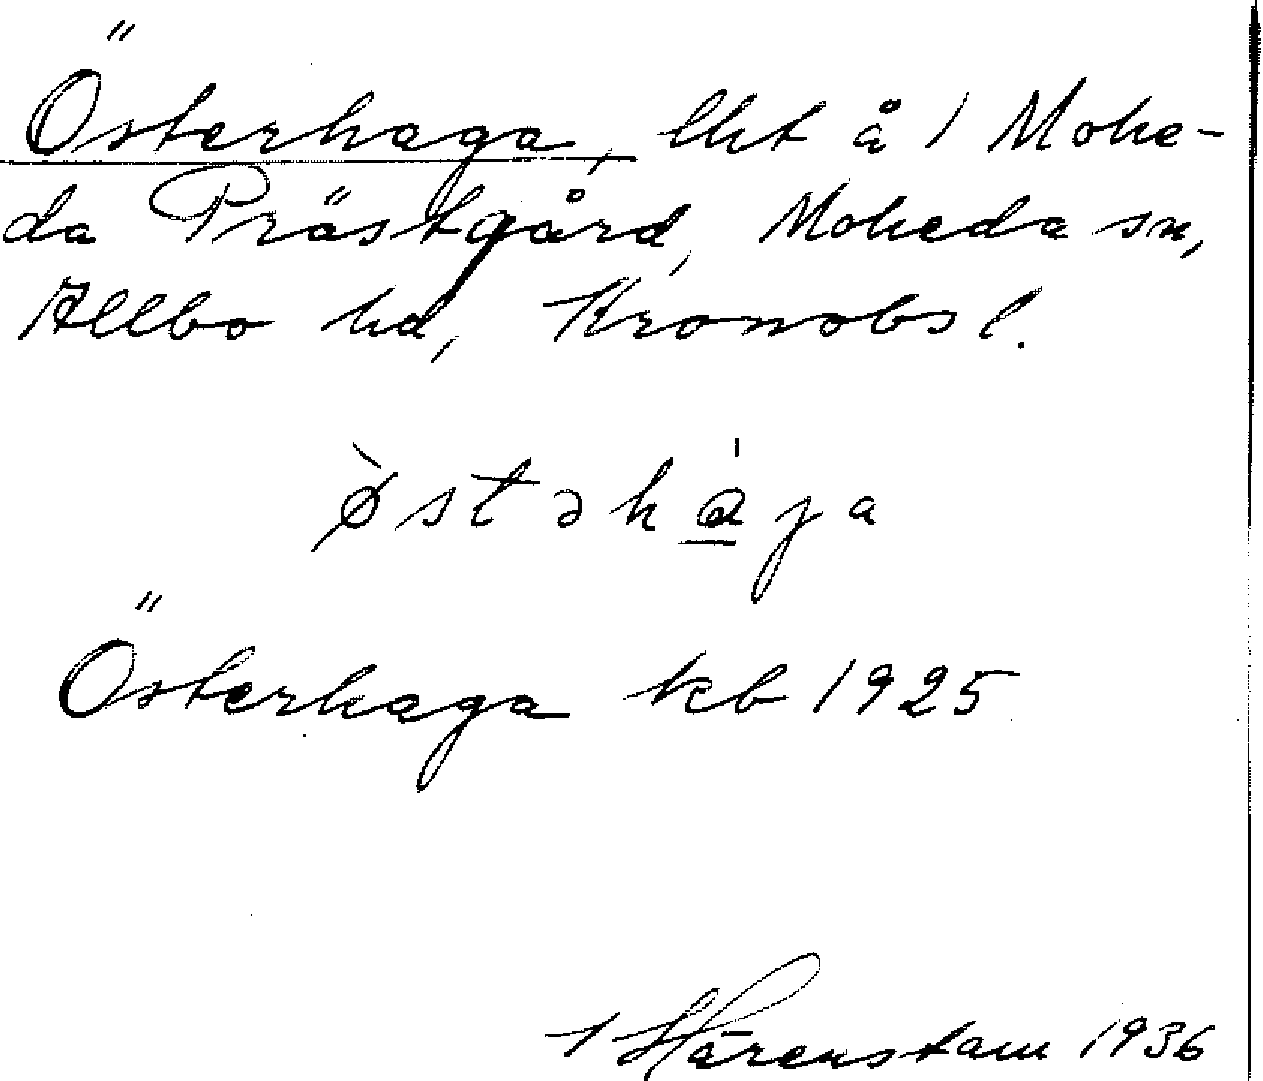 Österhaga, lht å 1 Mohe-
da Prästgård, Moheda sn,
Allbo hd, Kronobs l.
ø̀stəha̲̍ga
Österhaga kb 1925
Härenstam 1936